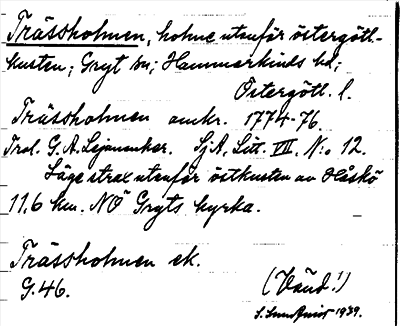 Trässholmen, holme utanför östergötl.-
kusten; Gryt sn; Hammarkinds hd;
Östergötl. l.
Trässholmen omkr. 1774-76.
Trol. G. A. Lejonanker. SjA, Litt. VII, N:o 12.
Läge strax utanför östkusten av Håskö
11,6 km. NÖ Gryts kyrka.
Trässholmen ek.
G. 46.
(Vänd!)
S. Sundqvist 1939.